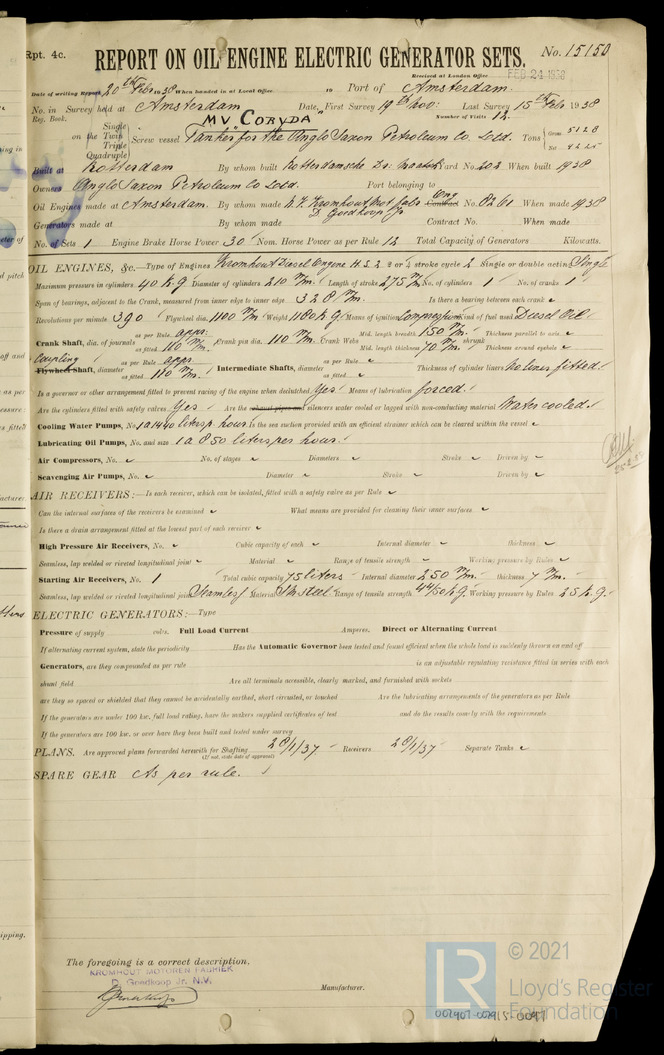 Rpt. 4c. REPORT ON OIL ENGINE ELECTRIC GENERATOR SETS. No. 15150
Received at London Office FEB 24 1938
Date of writing Report 20th Feb 1938 When handed in at Local Office 19 Port of Amsterdam.
No. in Survey held at Amsterdam Date, First Survey 19th Last Survey 15th Feb 1938
Reg. Book. Number of Visits 12
MV "CORYDA"
on the Single Twin Triple Quadruple Screw vessel Tanker for the Anglo Saxon Petroleum Co Ltd. Tons Gross Net
Built at Rotterdam By whom built Rotterdamsche Dr. Yard No. 202 When built 1938
Owners Anglo Saxon Petroleum Co Ltd. Port belonging to
Oil Engines made at Amsterdam. By whom made N.V. Kromhout Mot. fabr. D. Goedkoop Jr Eng Contract No. 8261 When made 1938
Generators made at By whom made Contract No. When made
No. of Sets 1 Engine Brake Horse Power 30 Nom. Horse Power as per Rule 12 Total Capacity of Generators Kilowatts.
OIL ENGINES, &c.—Type of Engines Kromhout Diesel Engine H.S.2. 2 or 4 stroke cycle 2 Single or double acting Single
Maximum pressure in cylinders 40 k.g. Diameter of cylinders 210 m/m. Length of stroke 275 m/m. No. of cylinders 1 No. of cranks 1
Span of bearings, adjacent to the Crank, measured from inner edge to inner edge 328 m/m. Is there a bearing between each crank
Revolutions per minute 390 Flywheel dia. 1100 m/m Weight 1180 k.g. Means of ignition Compression Kind of fuel used Diesel Oil
Crank Shaft, dia. of journals as per Rule appr. as fitted 110 m/m. Crank pin dia. 110 m/m. Crank Webs Mid. length breadth 150 m/m. Mid. length thickness 70 m/m. shrunk Thickness parallel to axis Thickness around eyehole
Coupling Flywheel Shaft, diameter as per Rule appr. as fitted 110 m/m. Intermediate Shafts, diameter as per Rule as fitted Thickness of cylinder liners No liner fitted.
Is a governor or other arrangement fitted to prevent racing of the engine when declutched Yes Means of lubrication forced.
Are the cylinders fitted with safety valves Yes Are the exhaust pipes and silencers water cooled or lagged with non-conducting material Water cooled.
Cooling Water Pumps, No. 1 a 1440 liters p. hour. Is the sea suction provided with an efficient strainer which can be cleared within the vessel
Lubricating Oil Pumps, No. and size 1 a 850 liters per hour.
Air Compressors, No. No. of stages Diameters Stroke Driven by
Scavenging Air Pumps, No. Diameter Stroke Driven by
AIR RECEIVERS:—Is each receiver, which can be isolated, fitted with a safety valve as per Rule
Can the internal surfaces of the receivers be examined What means are provided for cleaning their inner surfaces
Is there a drain arrangement fitted at the lowest part of each receiver
High Pressure Air Receivers, No. Cubic capacity of each Internal diameter thickness
Seamless, lap welded or riveted longitudinal joint Material Range of tensile strength Working pressure by Rules
Starting Air Receivers, No. 1 Total cubic capacity 75 liters Internal diameter 250 m/m. thickness 7 m/m.
Seamless, lap welded or riveted longitudinal joint Seamless Material S.M. steel Range of tensile strength 44/50 k.g. Working pressure by Rules 25 k.g.
ELECTRIC GENERATORS:—Type
Pressure of supply volts. Full Load Current Amperes. Direct or Alternating Current
If alternating current system, state the periodicity Has the Automatic Governor been tested and found efficient when the whole load is suddenly thrown on and off
Generators, are they compounded as per rule is an adjustable regulating resistance fitted in series with each
shunt field Are all terminals accessible, clearly marked, and furnished with sockets
are they so spaced or shielded that they cannot be accidentally earthed, short circuited, or touched Are the lubricating arrangements of the generators as per Rule
If the generators are under 100 kw. full load rating, have the makers supplied certificates of test and do the results comply with the requirements
If the generators are 100 kw. or over have they been built and tested under survey
PLANS. Are approved plans forwarded herewith for Shafting 28/1/37 Receivers 28/1/37 Separate Tanks
(If not, state date of approval)
SPARE GEAR As per rule.
The foregoing is a correct description,
KROMHOUT MOTOREN FABRIEK
D. Goedkoop Jr. N.V.
Manufacturer.
© 2021
Lloyd's Register
Foundation
LR
002907-002915-0097